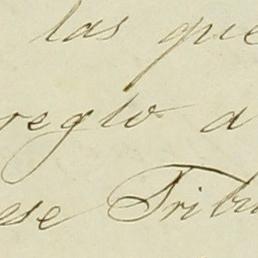 las que
reglo a
ese Tribu